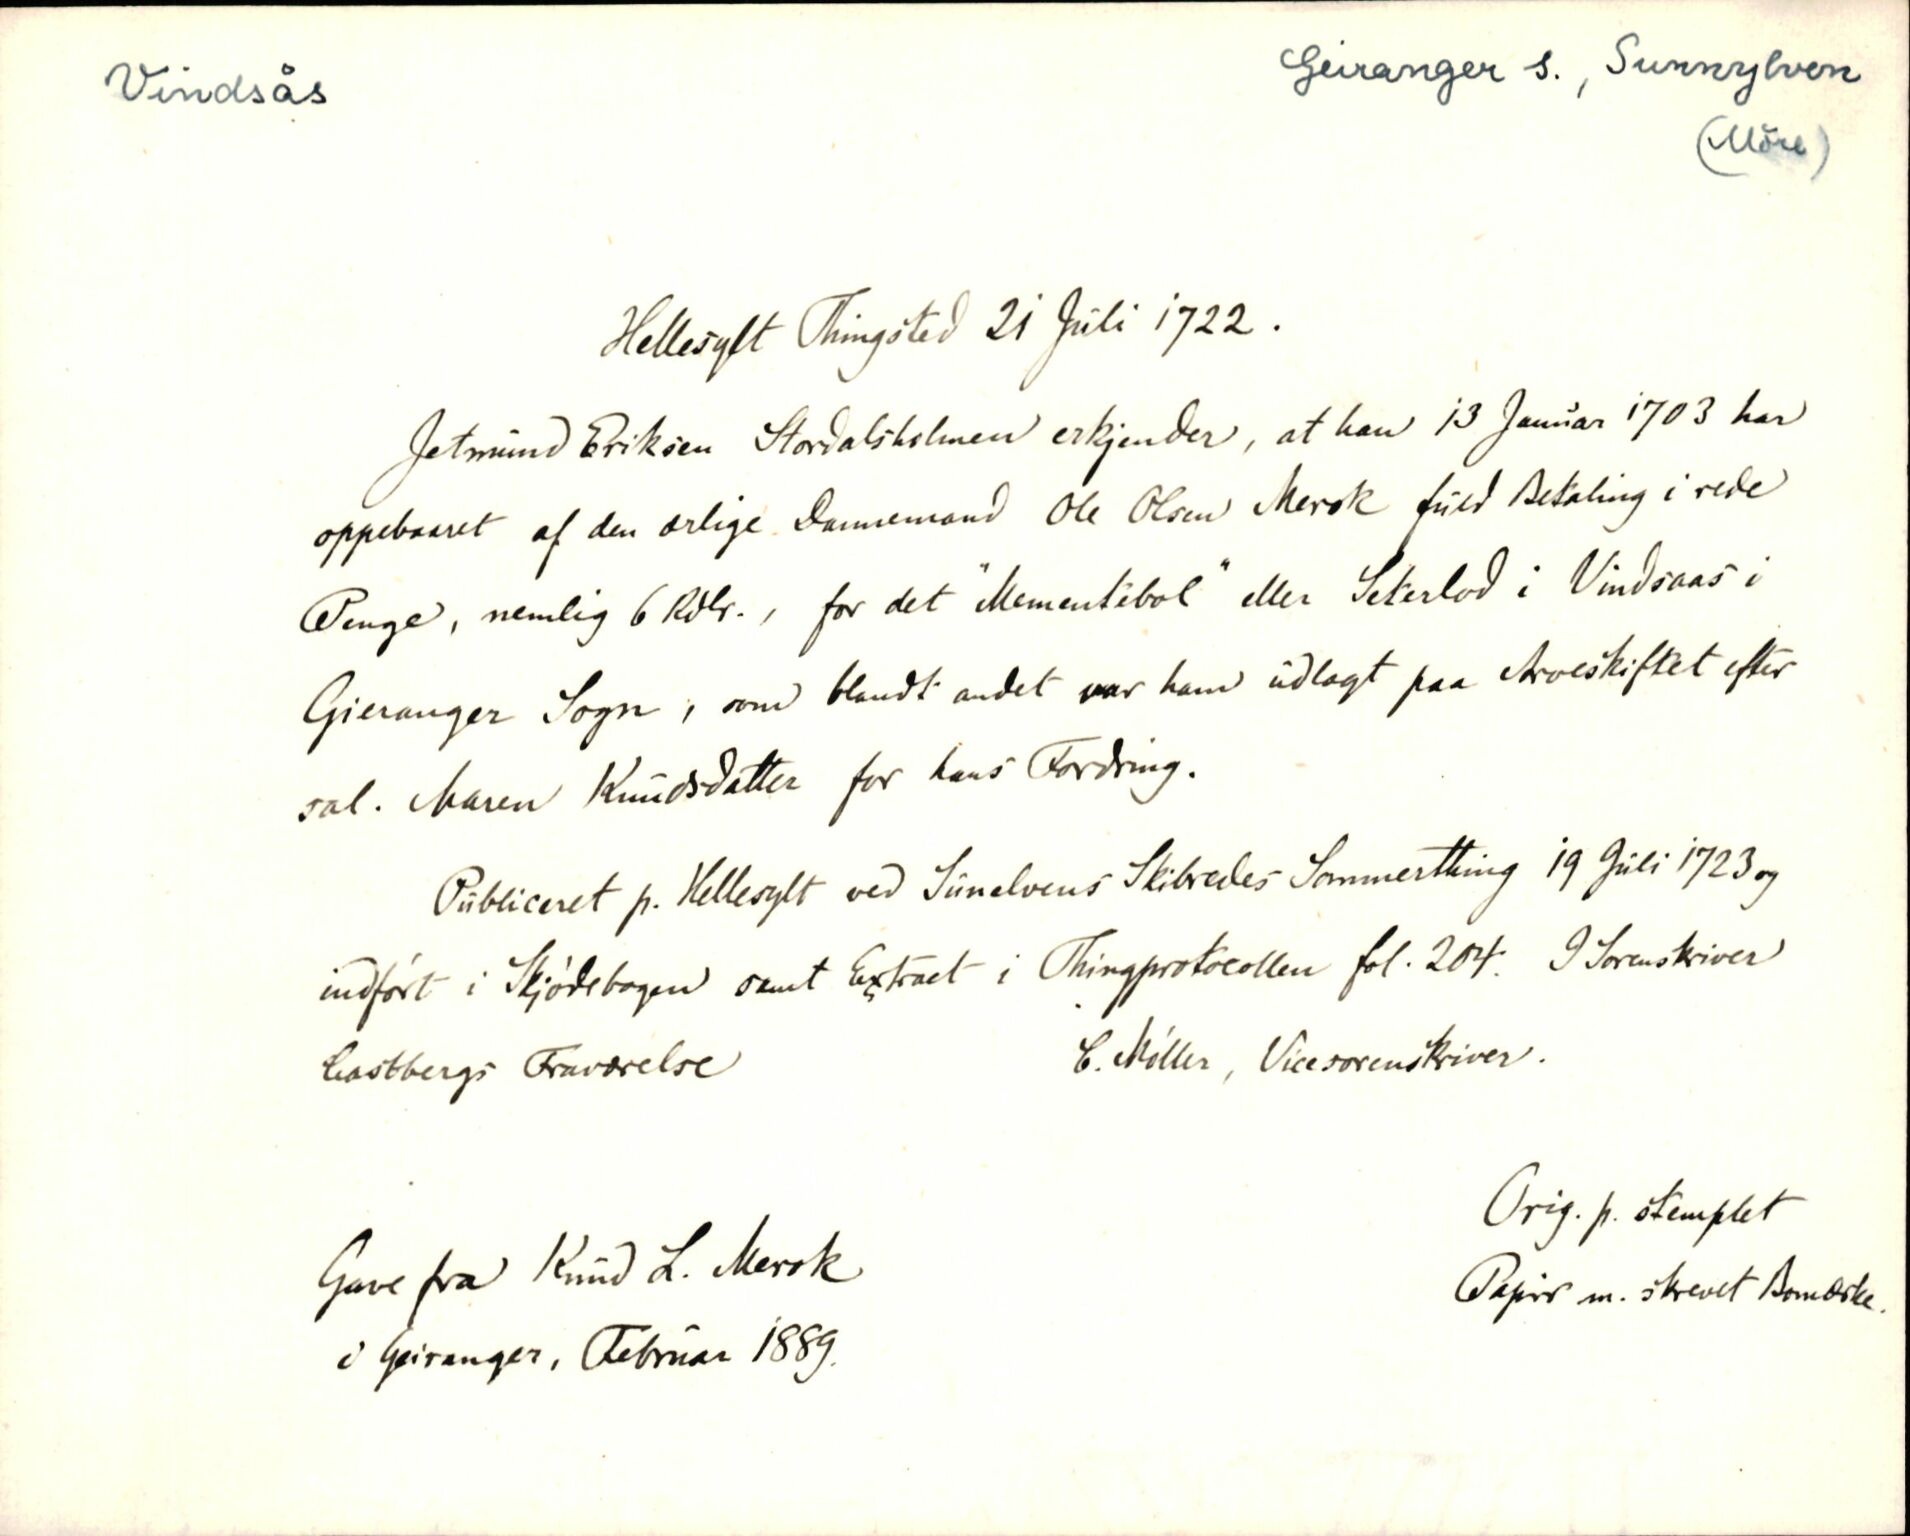 Vindsås
Geiranger s., Sunnylven
(Möre)
Hellesylt Thingsted 21 Juli 1722.
Jetmund Eriksen Stordalsholmen erkjender, at han 13 Januar 1703 har
oppebaaret af den ærlige Dannemand Ole Olsen Merok fuld Betaling i rede
Penge, nemlig 6 Rdlr., for det "Mementebol" eller Seterlod i Vindsaas i
Gieranger Sogn, som blandt andet var ham udlagt paa Arveskiftet efter
sal. Maren Knudsdatter for hans Fordring.
Publiceret p. Hellesylt ved Sunelvens Skibredes Sommerthing 19 Juli 1723 og
indført i Skjødebogen samt Extract i Thingprotocollen fol. 204. I Sorenskriver
Castbergs Fraværelse
C. Møller, Vicesorenskriver.
Orig. p. stemplet
Papir m. skrevet Bomærke.
Gave fra Knud L. Merok
i Geiranger, Februar 1889.